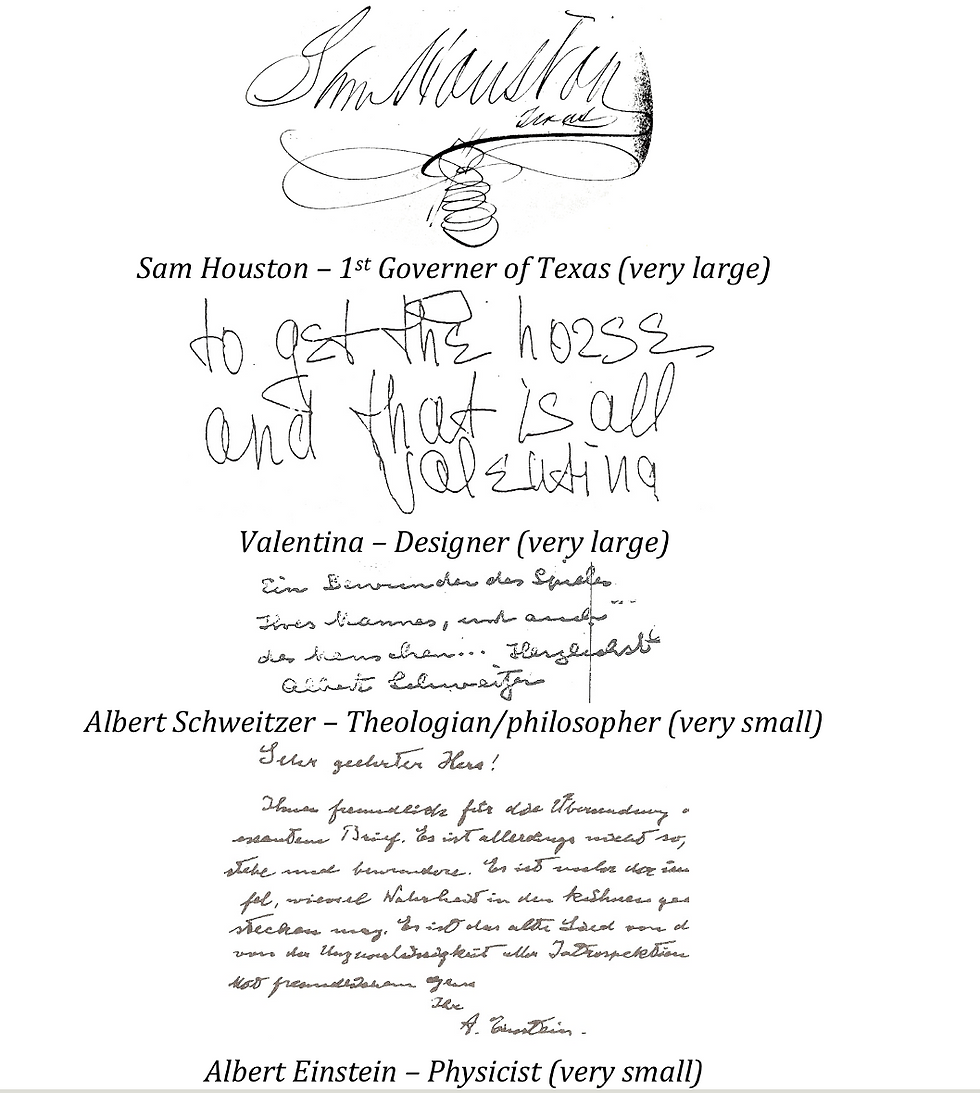 Sam Houston
Texas
Sam Houston – 1st Governer of Texas (very large)
to get the horse
and that is all
valentina
Valentina – Designer (very large)
Ein Bewunder des Spieles
Ihres Mannes, und auch
des Menschen... Herzlichst
Albert Schweitzer
Albert Schweitzer – Theologian/philosopher (very small)
Sehr geehrter Herr!
Ihnen freundlich für die Übersendung
Brief. Es ist allerdings nicht so,
stehe und bewundere. Es ist mehr der
fel, wieviel Wahrheit in den kühnen
stecken mag. Es ist das alte Lied von d
von der Unzuverlässigkeit aller Introspektion
Mit freundlichem
Ihr
A. Einstein.
Albert Einstein – Physicist (very small)